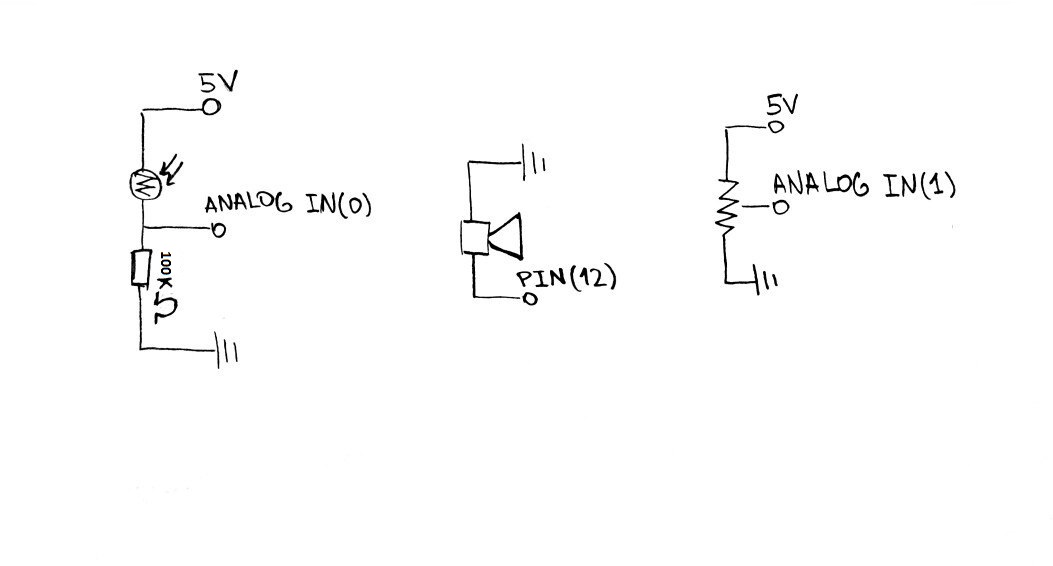 5V
ANALOG IN(0)
100K
PIN(12)
5V
ANALOG IN(1)